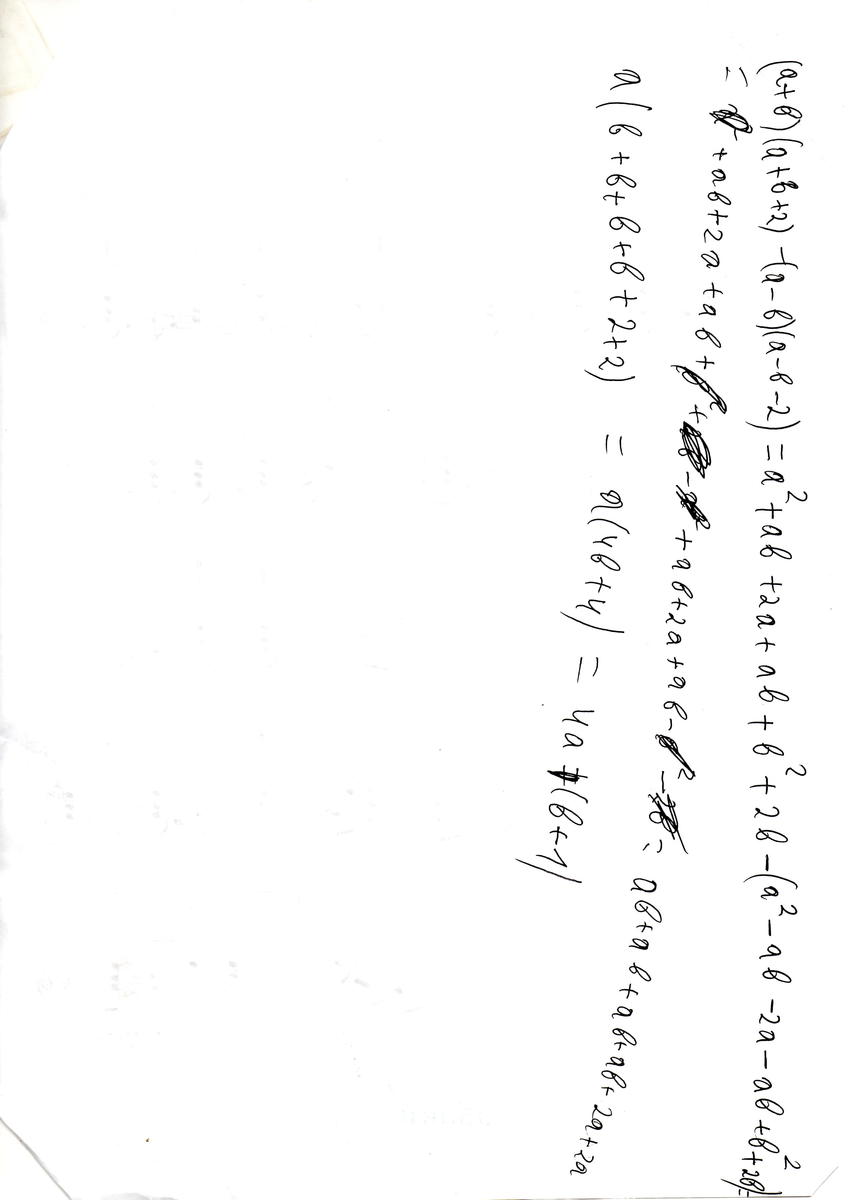 (a+b)(a+b+2)-(a-b)(a-b-2)=a²+ab+2a+ab+b²+2b-(a²-ab-2a-ab+b²+2b)=
= +ab+2a+ab+b²+ - +ab+2a+ab-b²-2b= ab+ab+ab+ab+2a+2a
a(b+b+b+b+2+2) = a(4b+4) = 4a(b+1)